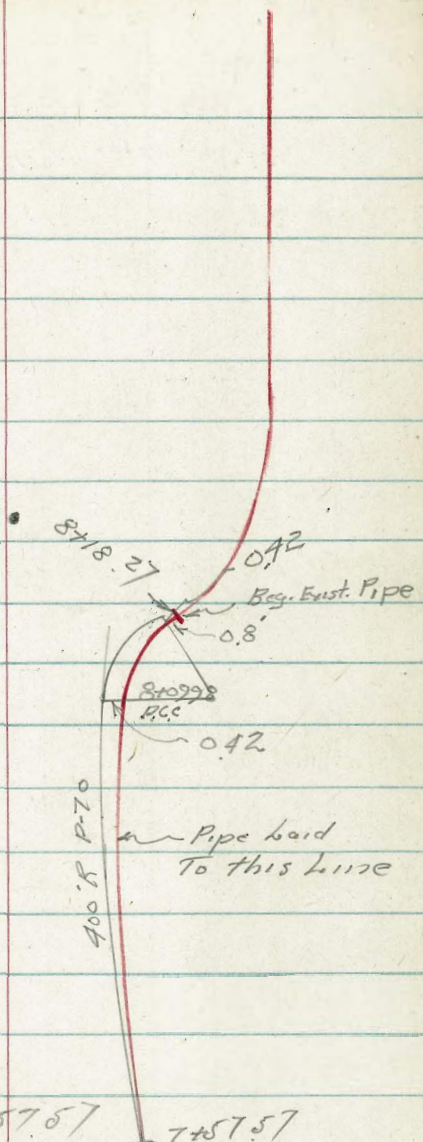 8+18.27
0.42
Beg. Exist. Pipe
0.8'
8+09.98
P.C.C
0.42
400'R P-70
Pipe Laid
To this Line
57 57
7+57.57